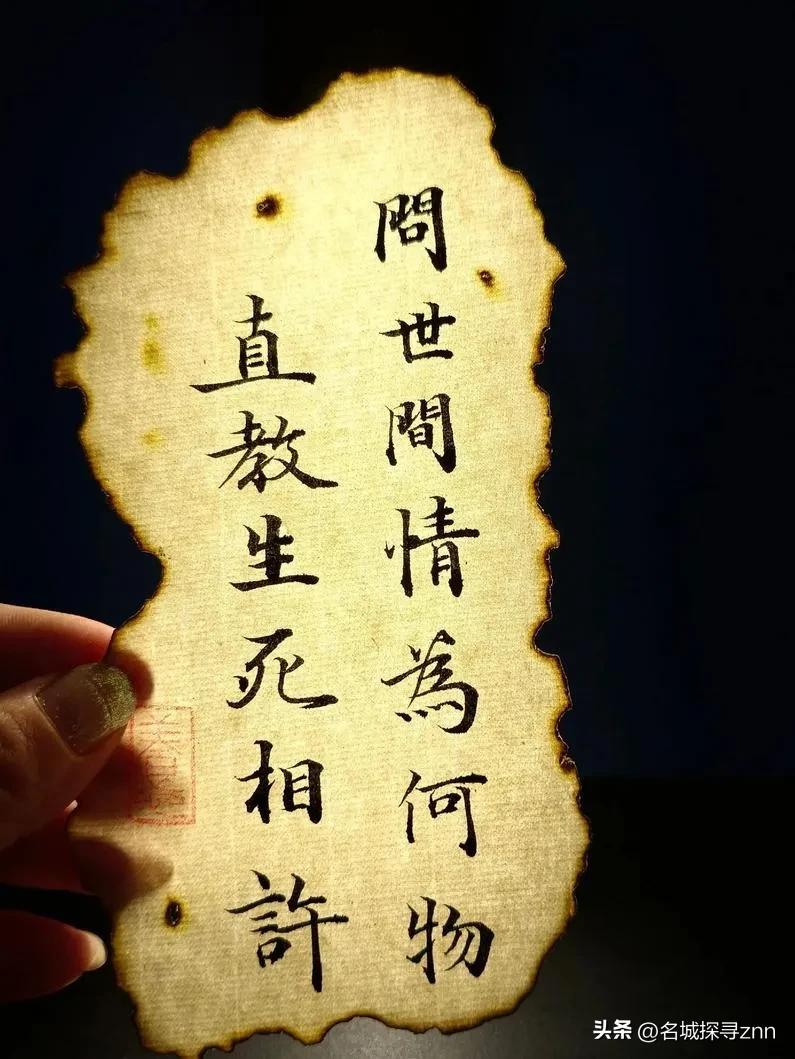 問世間情為何物
直教生死相許
头条 @名城探寻znn